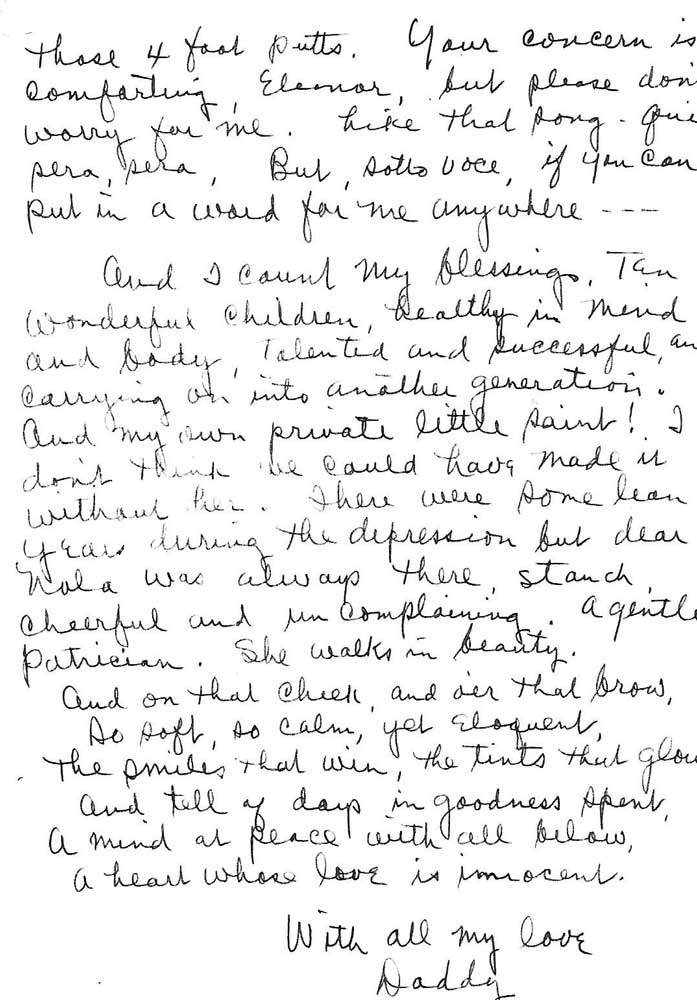 Those 4 foot putts. Your concern is
comforting, Eleanor, but please don
worry for me. Like that song - Que
sera, sera, But, sotto voce, if you can
put in a word for me anywhere ---
And I count my blessings, Ten
wonderful children, healthy in mind
and body, Talented and successful, an
carrying on into another generation.
And my own private little saint! I
don't think we could have made it
without her. There were some lean
years during the depression but dear
Nola was always there, stanch,
cheerful and uncomplaining. A gentle
patrician. She walks in beauty.
And on that cheek, and o'er that brow,
So soft, so calm, yet eloquent,
The smiles that win, the tints that glow
And tell of days in goodness spent,
A mind at peace with all below,
A heart whose love is innocent.
With all my love
Daddy